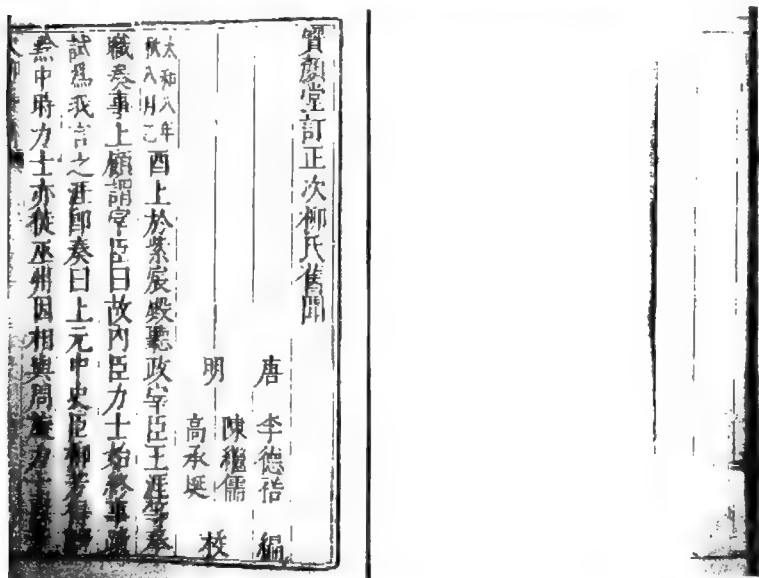 寶顏堂訂正次柳氏舊聞
唐 李德裕 編
陳繼儒
明 高承埏 校
太和八年
秋八月乙
酉上於紫宸殿聽政宰臣王涯等奉
職奏事上顧謂宰臣曰故內臣力士始終事蹟
試爲我言之涯卽奏曰上元中史臣柳芳得
黔中時力士亦徙巫州因相與周旋力士